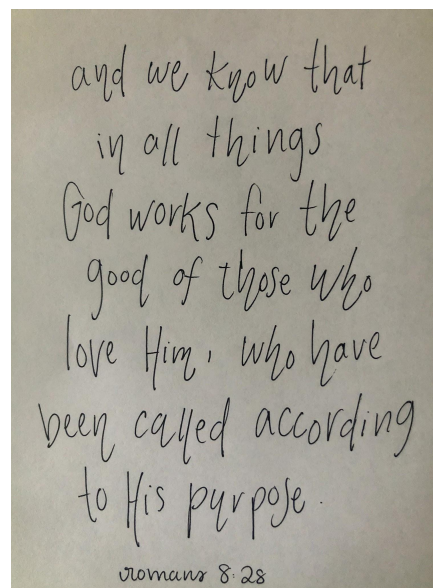 and we know that
in all things
God works for the
good of those who
love Him, who have
been called according
to His purpose.
romans 8:28